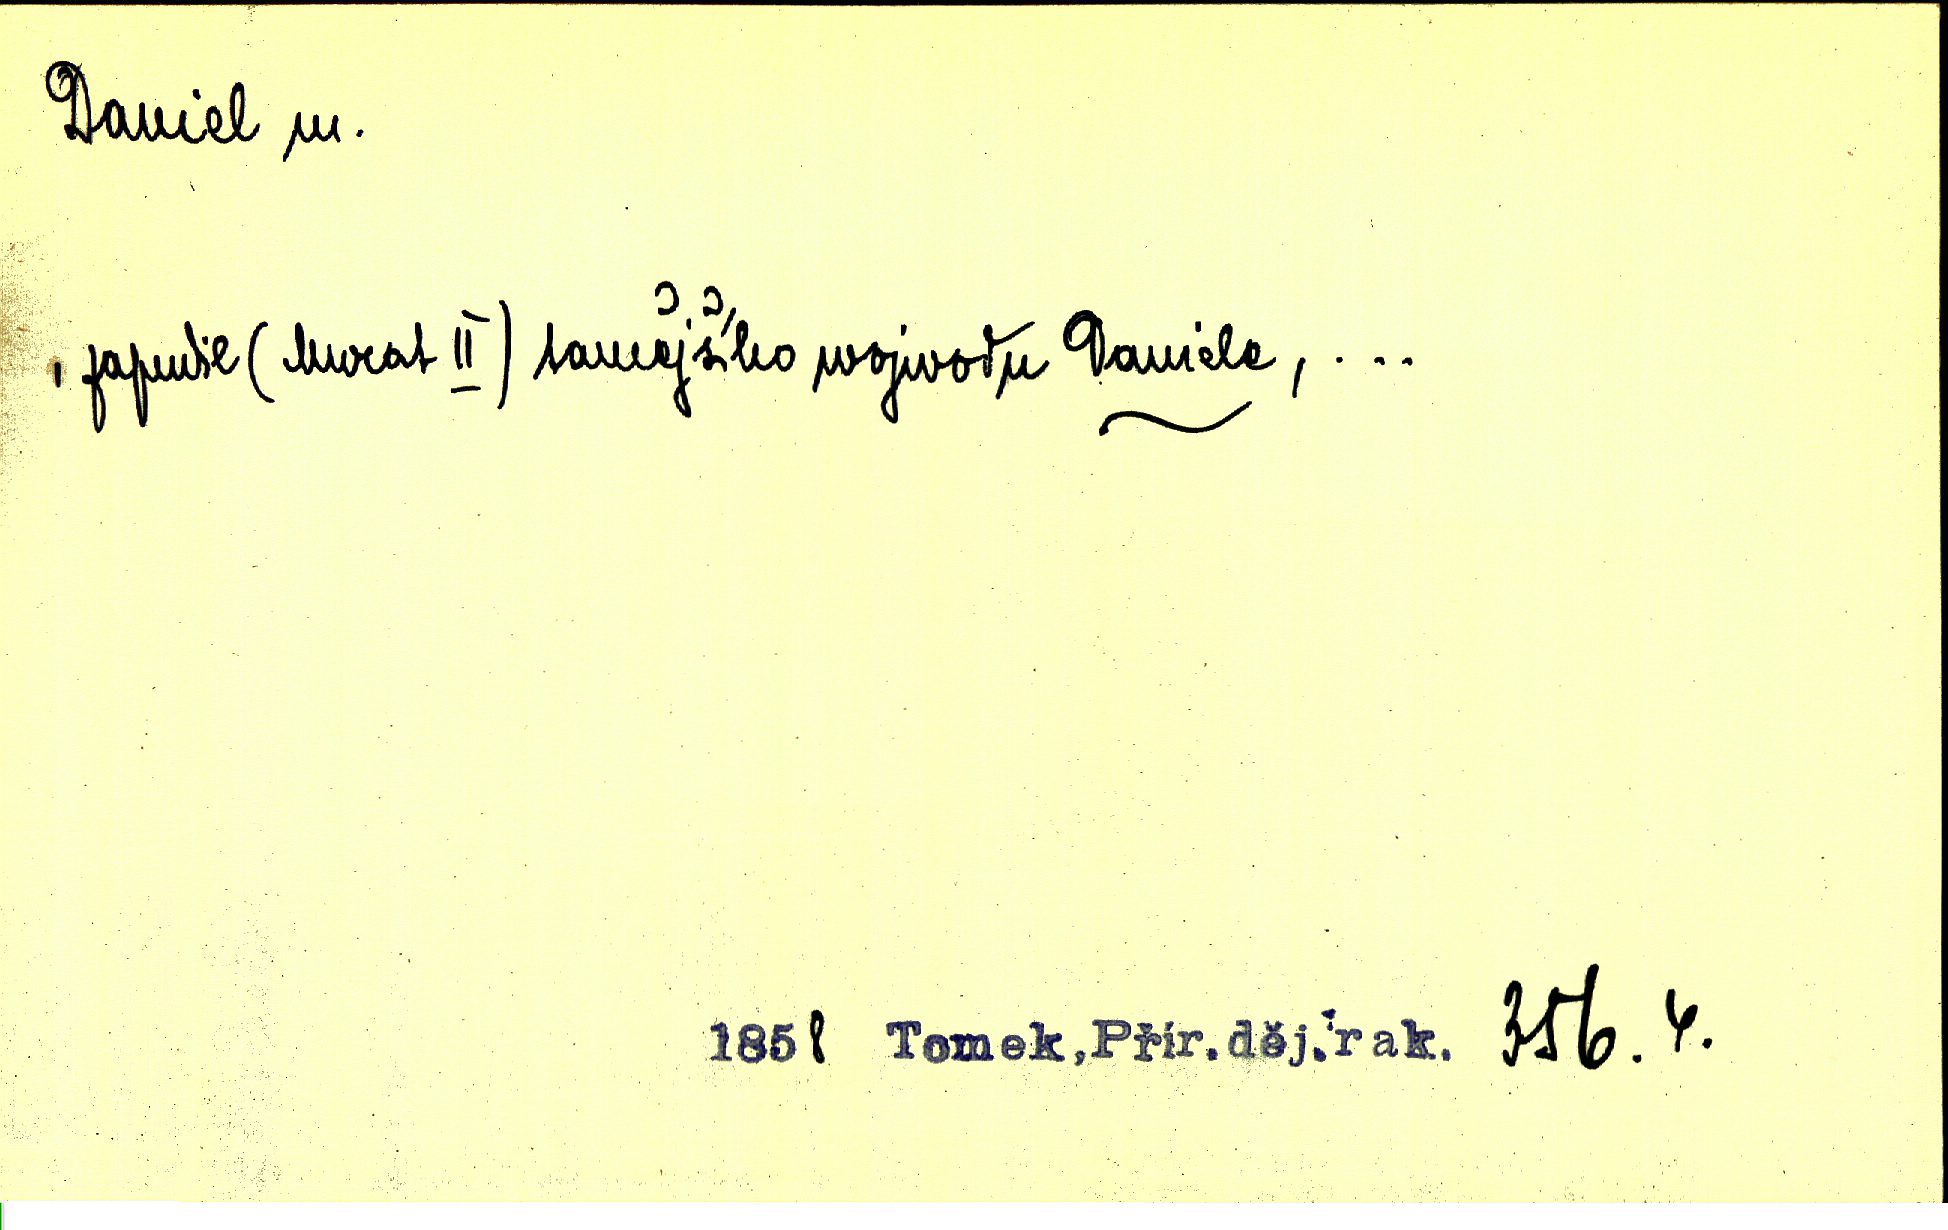 Daniel m.
, zapudil (Murat II) tamějšího wojwodu Daniele, ...
1858 Tomek,Přír.děj.rak. 356. 4.